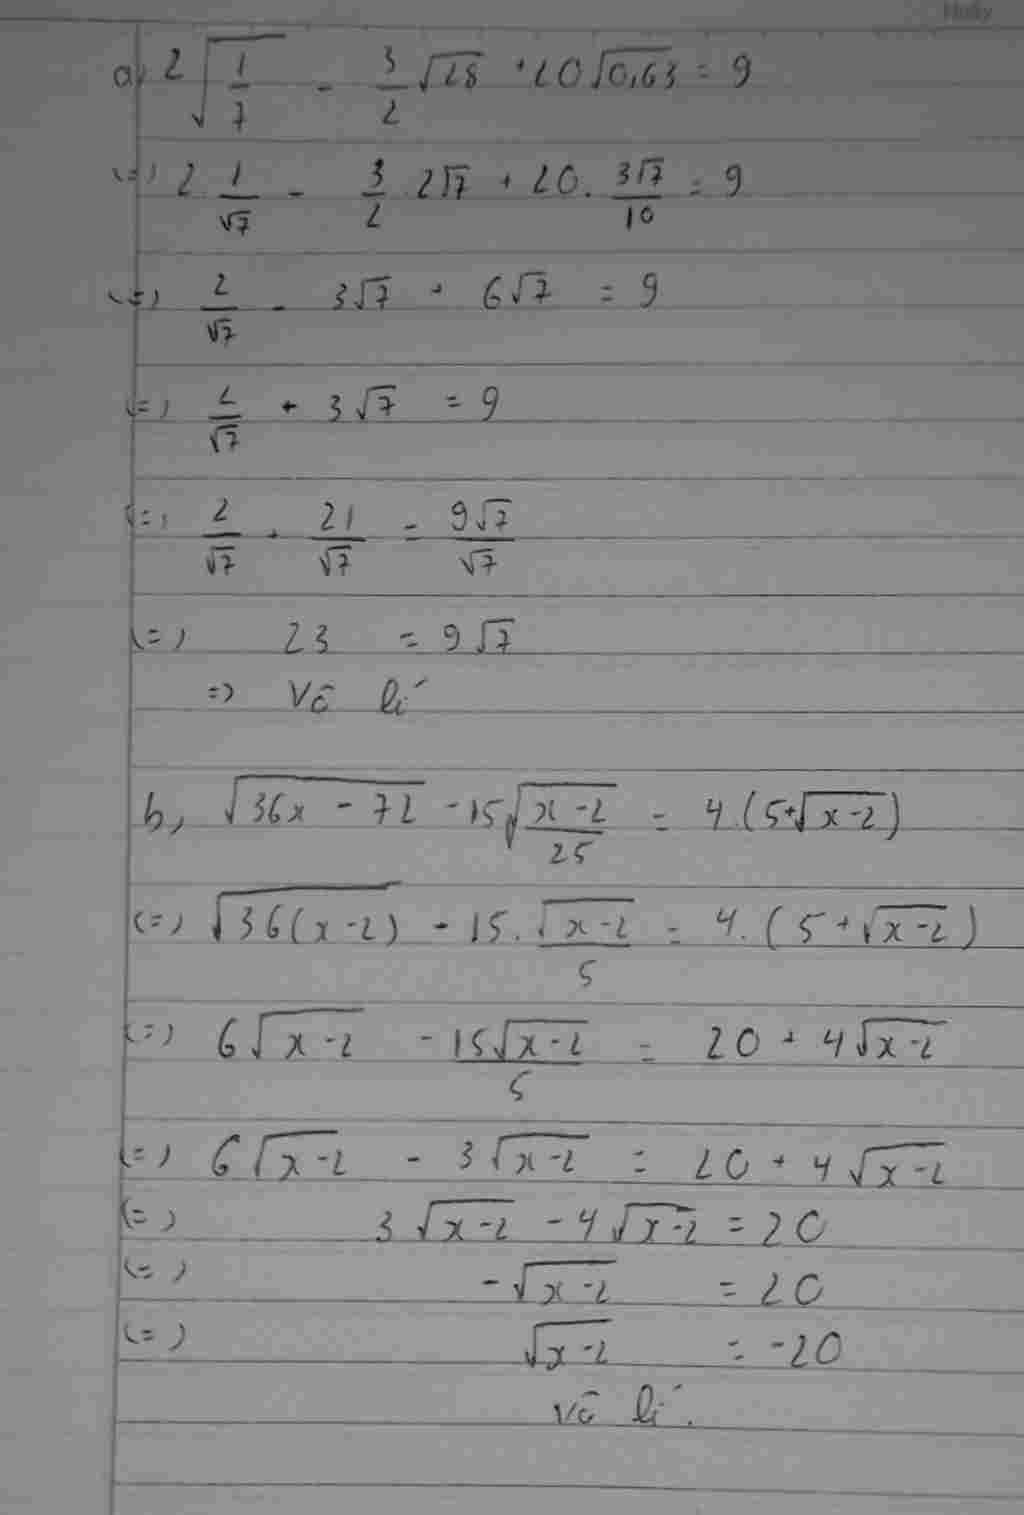 a) 2√(1/7) - 3/2 √28 + 20√0,63 = 9
(=) 2 1/√7 - 3/2 2√7 + 20. 3√7/10 = 9
(=) 2/√7 - 3√7 + 6√7 = 9
(=) 2/√7 + 3√7 = 9
(=) 2/√7 + 21/√7 = 9√7/√7
(=) 23 = 9√7
=) Vô lí
b, √(36x - 72) - 15√((x-2)/25) = 4.(5+√(x-2))
(=) √(36(x-2)) - 15. √(x-2)/5 = 4. (5 + √(x-2))
(=) 6√(x-2) - 15√(x-2)/5 = 20 + 4√(x-2)
(=) 6√(x-2) - 3√(x-2) = 20 + 4√(x-2)
(=) 3√(x-2) - 4√(x-2) = 20
(=) -√(x-2) = 20
(=) √(x-2) = -20
Vô lí.